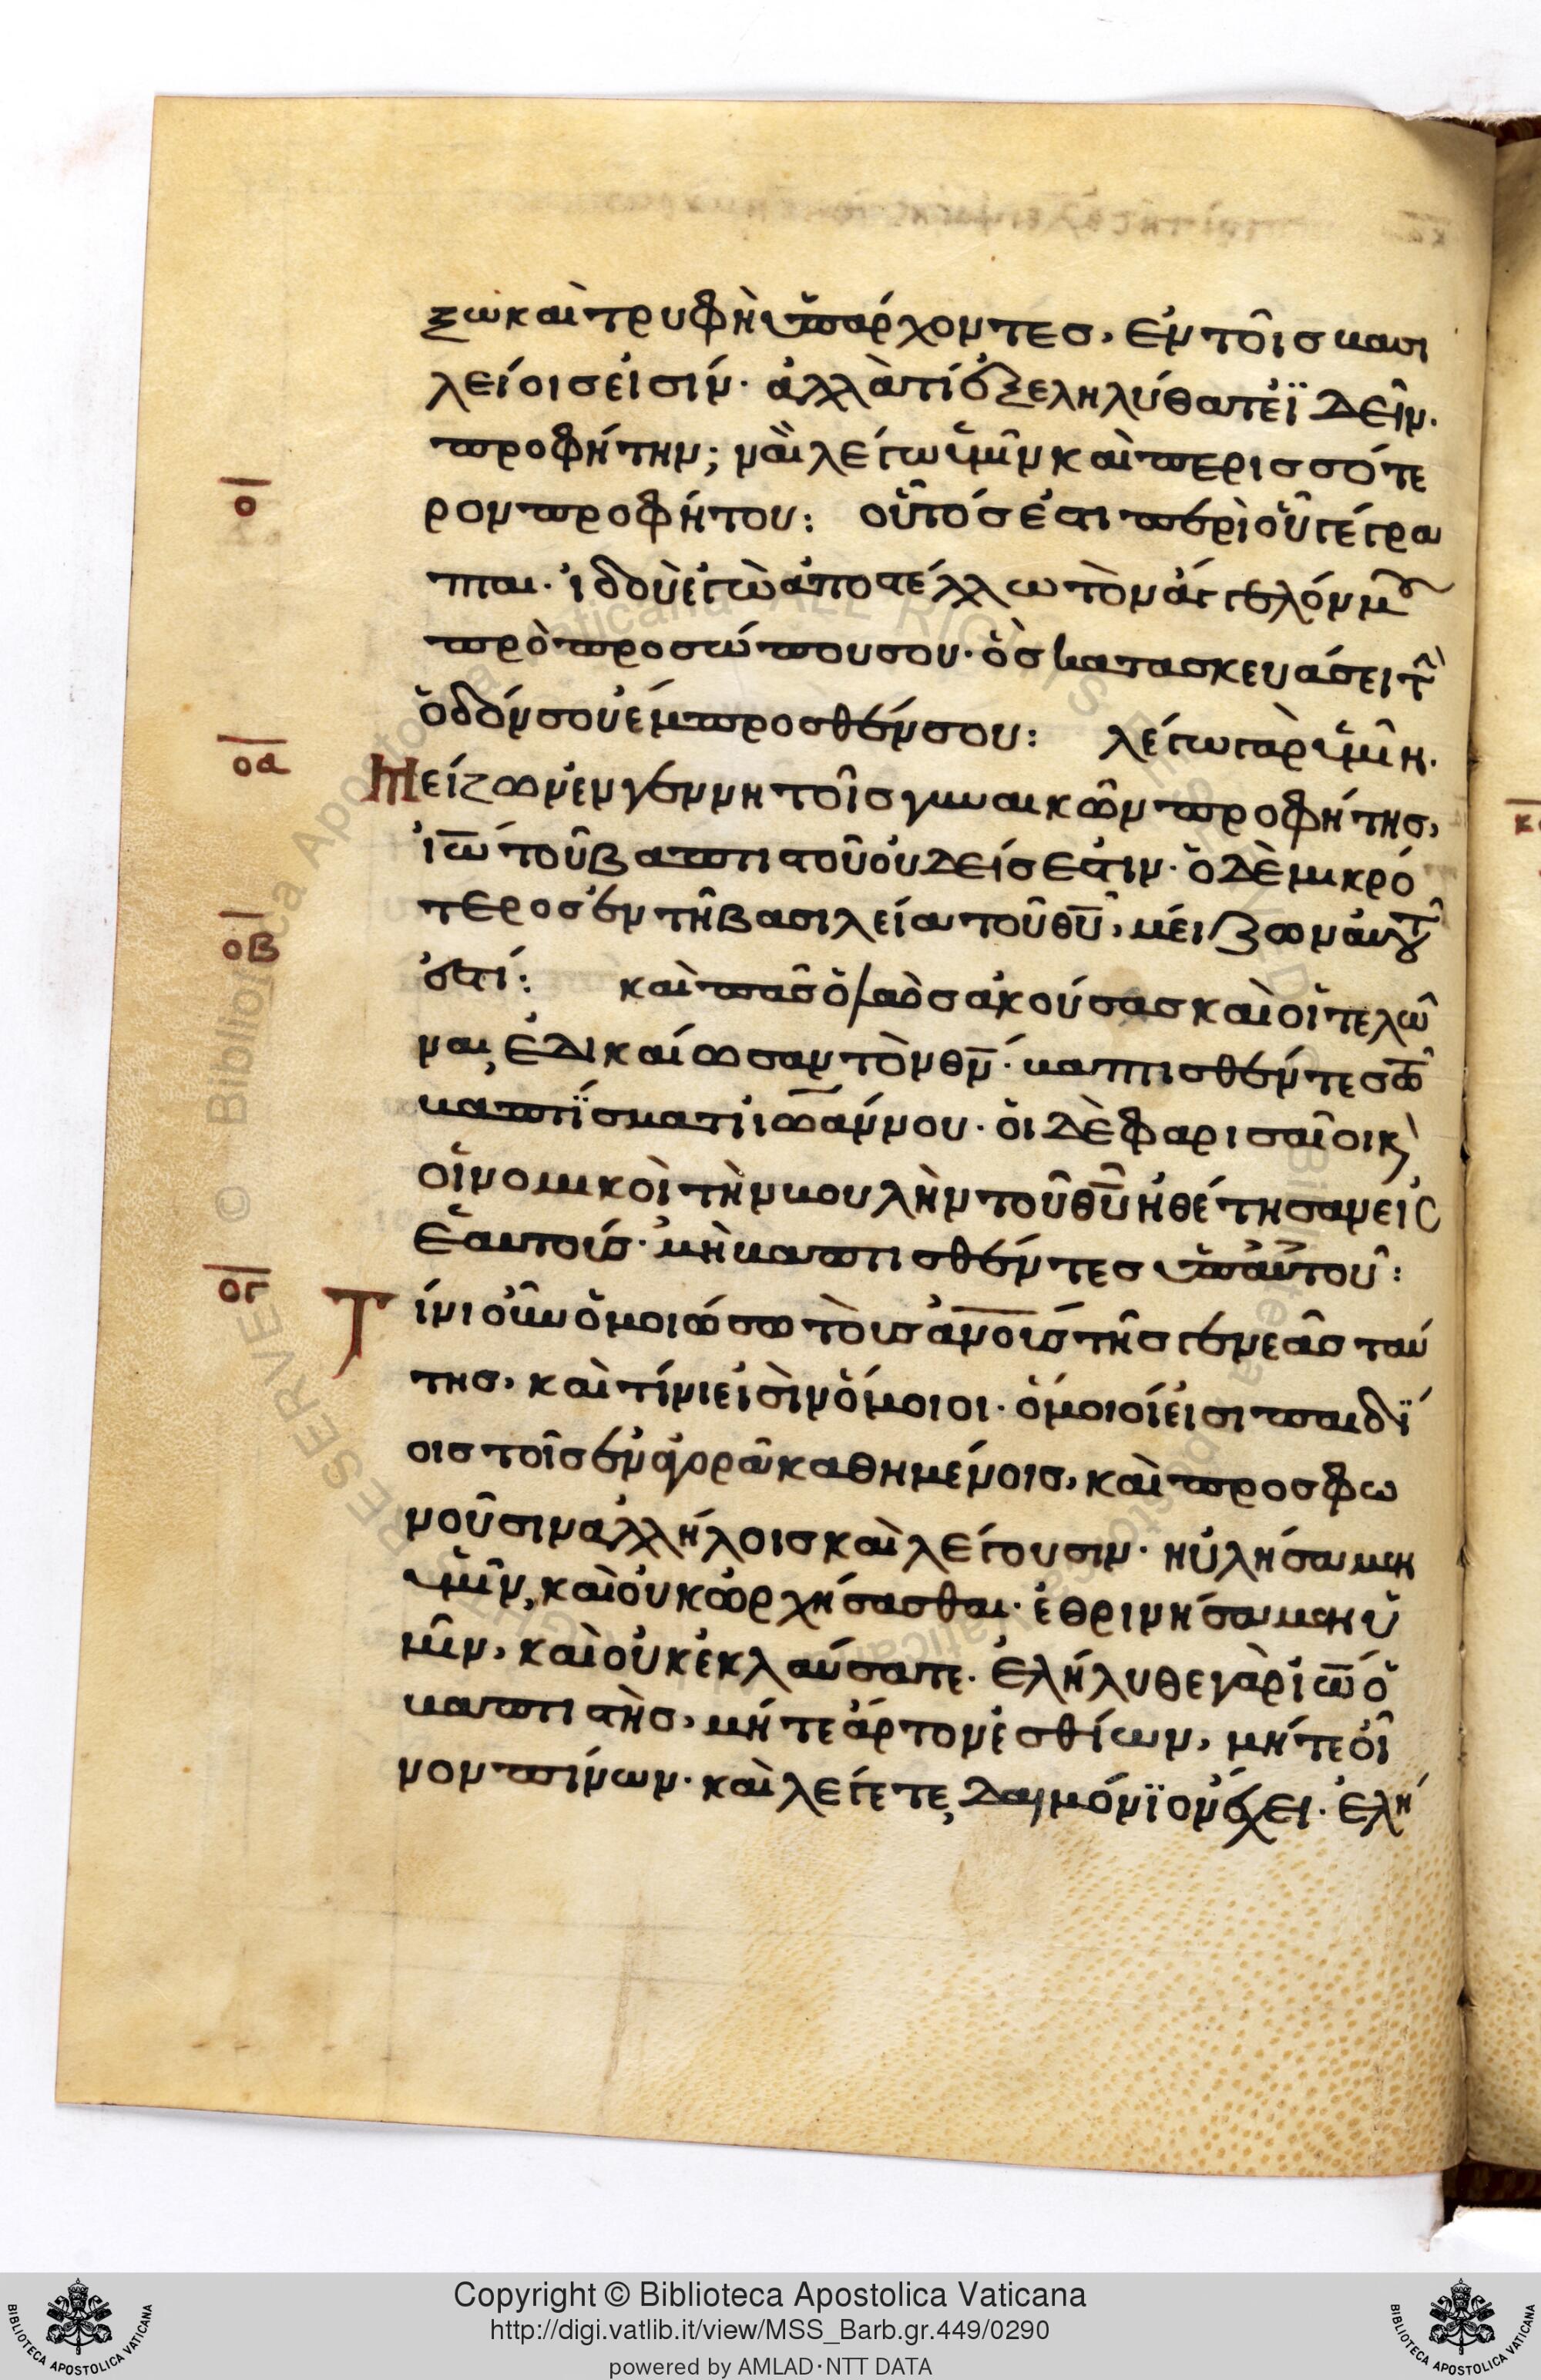 ξω καὶ τρυφὴ ὑπάρχοντεσ, ἐν τοῖσ βασι
λείοισ εἰσίν· ἀλλὰ τί ἐξεληλύθατε ἰ̈δεῖν·
προφήτην; ναὶ λέγω ὑμῖν καὶ περισσότε
ρον προφήτου: οὗτόσ ἐστι περὶ οὗ γέγρα
πται· ἰδοὺ ἐγὼ ἀποστέλλω τὸν ἄγγελόν μου
πρὸ προσώπου σου· ὃσ κατασκευάσει τὴν
ὁδόν σου ἔμπροσθέν σου: λέγω γὰρ ὑμῖν·
Μείζων ἐν γεννητοῖσ γυναικῶν προφήτησ,
ἰω̅ τοῦ βαπτιστοῦ οὐδείσ ἐστιν· ὁ δὲ μικρό
τεροσ ἐν τῆ βασιλεία τοῦ θυ̅, μείζων αὐτοῦ
ἐστί: καὶ πᾶσ ὁ λαὸσ ἀκούσασ καὶ οἱ τελῶ
ναι, ἐδικαίωσαν τὸν θν̅· βαπτισθέντεσ τὸ
βάπτϊσμα τὸ ἰωάννου· οἱ δὲ φαρισαῖοι κ
οἱ νομικοὶ τὴν βουλὴν τοῦ θυ̅ ἠθέτησαν εἰσ
ἑαυτούσ· μὴ βαπτισθέντεσ ὑπ' αὐτοῦ:
Τίνι οὖν ὁμοιώσω τοὺσ ἀνο̅υσ τῆσ γενεᾶσ ταύ
τησ, καὶ τίνι εἰσὶν ὅμοιοι· ὅμοιοί εἰσι παιδί̈
οισ τοῖσ ἐν ἀγορᾶ καθημένοισ, καὶ προσφω
νοῦσιν ἀλλήλοισ καὶ λέγουσιν· ηὐλήσαμεν
ὑμῖν, καὶ οὐκ ὠρχήσασθαι· ἐθρινήσαμεν ὑ
μῖν, καὶ οὐκ ἐκλαύσατε· ἐλήλυθε γὰρ ἰω̅ ὁ
βαπτιστὴσ, μήτε ἄρτον ἐσθίων, μήτε οἶ
νον πίνων· καὶ λέγετε, δαιμόνϊον ἔχει· ἐλή
ο
οα
οβ
ογ
Copyright © Biblioteca Apostolica Vaticana
http://digi.vatlib.it/view/MSS_Barb.gr.449/0290
powered by AMLAD·NTT DATA
BIBLIOTECA APOSTOLICA VATICANA
BIBLIOTECA APOSTOLICA VATICANA